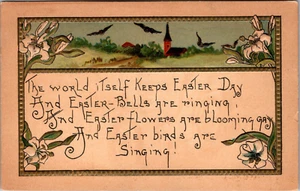 The world itself keeps Easter Day
And Easter-Bells are ringing,
And Easter flowers are blooming gay
And Easter birds are
Singing!